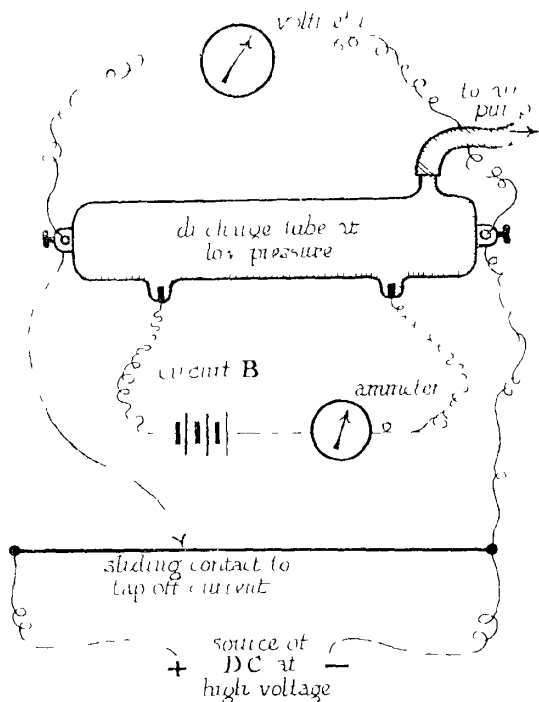 to air
discharge tube at
low pressure
circuit B
ammeter
sliding contact to
tap off current
source of
+ DC at −
high voltage